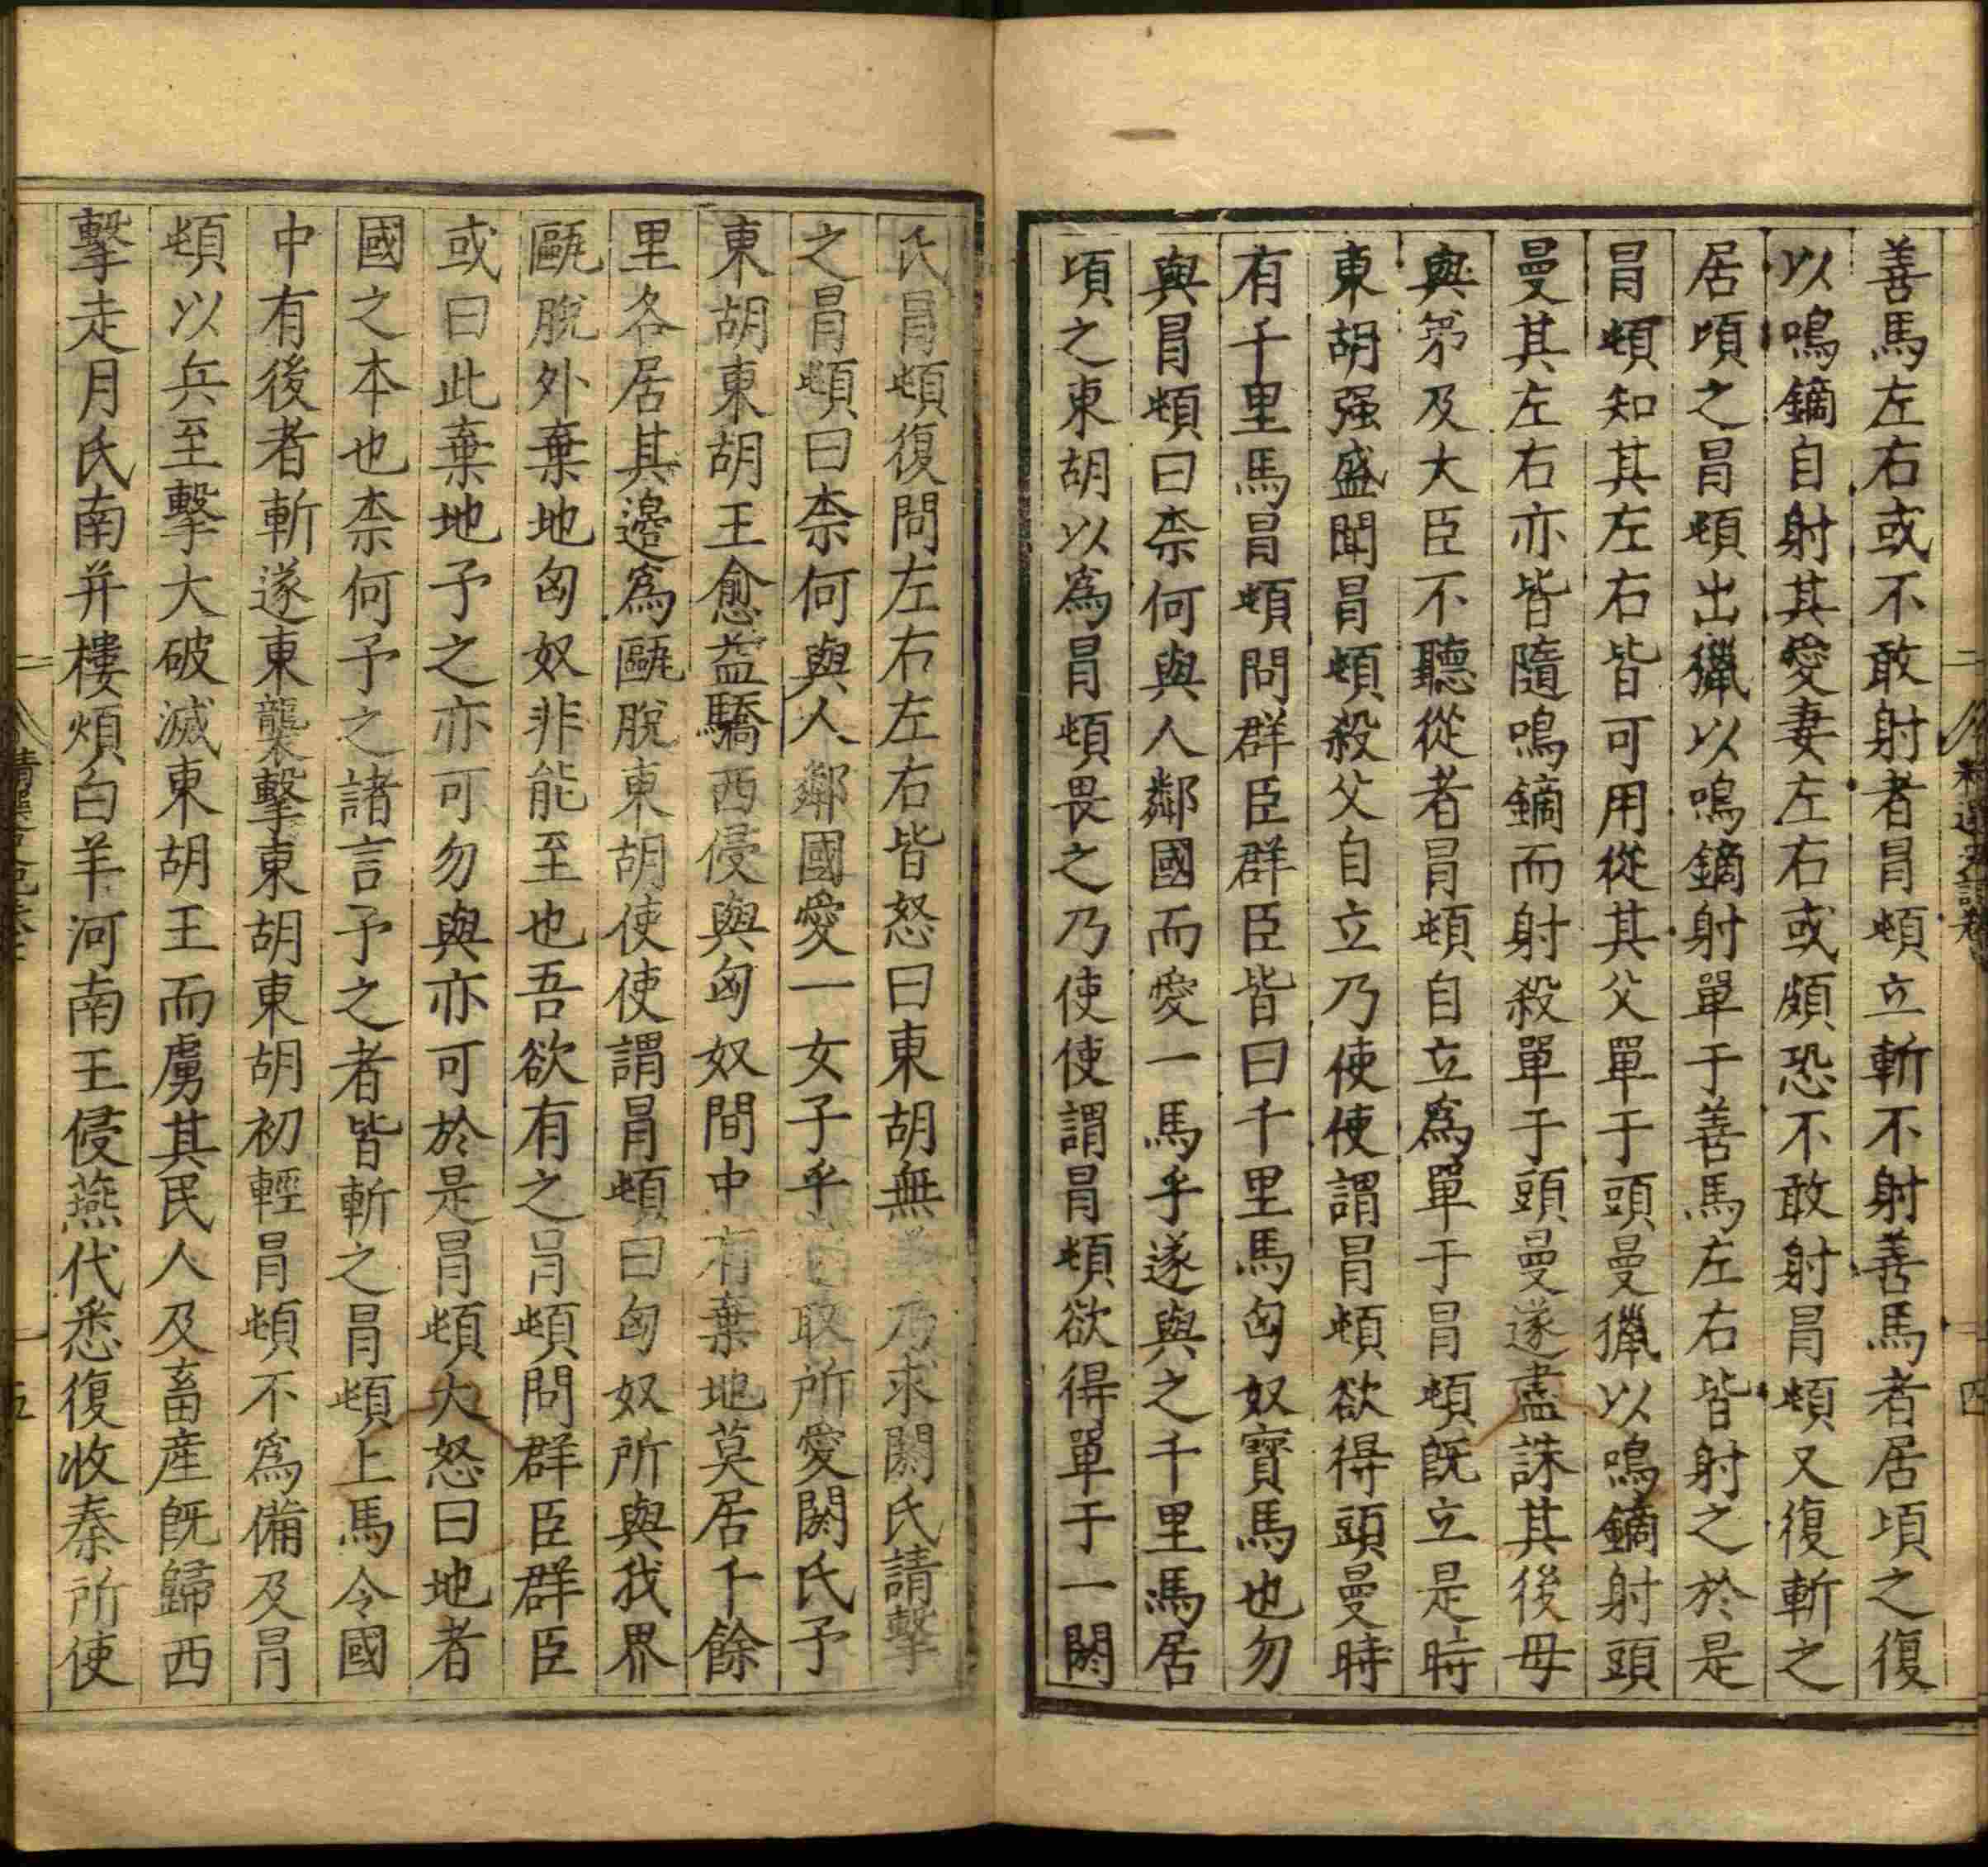 善馬左右或不敢射者冒頓立斬不射善馬者居頃之復
以鳴鏑自射其愛妻左右或頗恐不敢射冒頓又復斬之
居頃之冒頓出獵以鳴鏑射單于善馬左右皆射之於是
冒頓知其左右皆可用從其父單于頭曼獵以鳴鏑射頭
曼其左右亦皆隨鳴鏑而射殺單于頭曼遂盡誅其後母
與弟及大臣不聽從者冒頓自立爲單于冒頓旣立是時
東胡强盛聞冒頓殺父自立乃使使謂冒頓欲得頭曼時
有千里馬冒頓問群臣群臣皆曰千里馬匈奴寶馬也勿
與冒頓曰柰何與人鄰國而愛一馬乎遂與之千里馬居
頃之東胡以爲冒頓畏之乃使使謂冒頓欲得單于一閼
氏冒頓復問左右左右皆怒曰東胡無乃求閼氏請擊
之冒頓曰柰何與人鄰國愛一女子乎取所愛閼氏予
東胡東胡王愈益驕西侵與匈奴間中有棄地莫居千餘
里各居其邊爲甌脫東胡使使謂冒頓曰匈奴所與我界
甌脫外棄地匈奴非能至也吾欲有之冒頓問群臣群臣
或曰此棄地予之亦可勿與亦可於是冒頓大怒曰地者
國之本也柰何予之諸言予之者皆斬之冒頓上馬令國
中有後者斬遂東襲擊東胡東胡初輕冒頓不爲備及冒
頓以兵至擊大破滅東胡王而虜其民人及畜産旣歸西
擊走月氏南并樓煩白羊河南王侵燕代悉復收秦所使
四
五